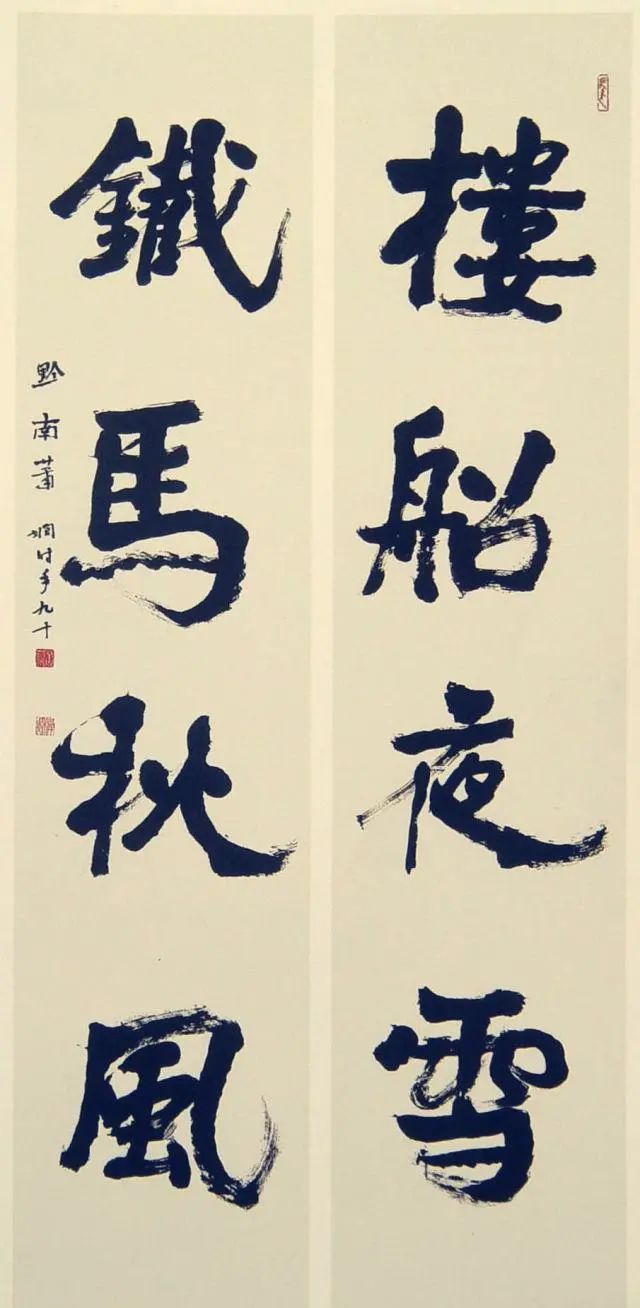 樓船夜雪
鐵馬秋風
黔南蕭嫻时年九十